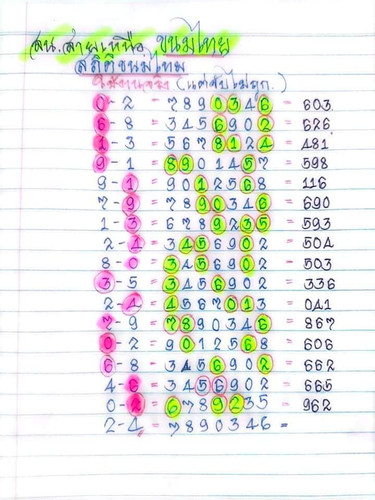 สน. สายเหนือ ขนมไทย
สถิติขนมไทย
ใช้งานจริง (แต่จับไม่ถูก.)
0 - 2 = 7890346 = 603
6 - 8 = 3456902 = 626
1 - 3 = 5678124 = 481
9 - 1 = 8901457 = 598
9 - 1 = 9012568 = 116
7 - 9 = 7890346 = 690
1 - 3 = 6789235 = 593
2 - 4 = 3456902 = 504
8 - 0 = 3456902 = 503
3 - 5 = 3456902 = 336
2 - 4 = 4567013 = 041
7 - 9 = 7890346 = 867
0 - 2 = 9012568 = 606
6 - 8 = 3456902 = 662
4 - 6 = 3456902 = 665
0 - 2 = 6789235 = 962
2 - 4 = 7890346 =